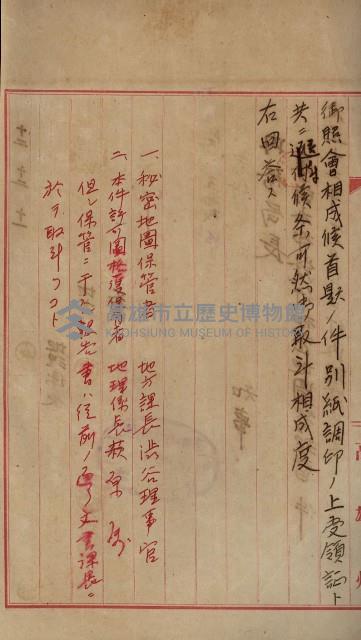 御照會相成候首題ノ件別紙調印ノ上受領証ト
共ニ送付候条可然御取計相成度
右回答ス
一、秘密地圖保管者　地方課長澁谷理事官
二、本件許可圖格護保管者　地理係長萩原
但シ保管ニ于スル報告書ハ従前ノ通リ文書課長ニ
於テ取斗フコト
高雄市立歷史博物館
KAOHSIUNG MUSEUM OF HISTORY
高雄州